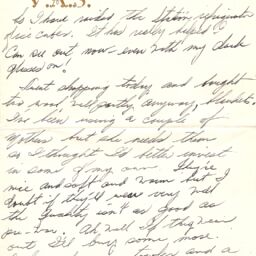 So I have raided the station refrigerator
ice cubes. It has really helped.
Can see out now - even with my dark
glasses on!
Went shopping today and bought
wool, anyway, blankets.
I've been using a couple of
Mothers but she needs them
so I thought I'd better invest
in some of my own. They're
nice and soft and warm but I
doubt if they'll wear very well
the quality isn't as good as
pre-war. Ah well if they wear
out I'll buy some more.
and a